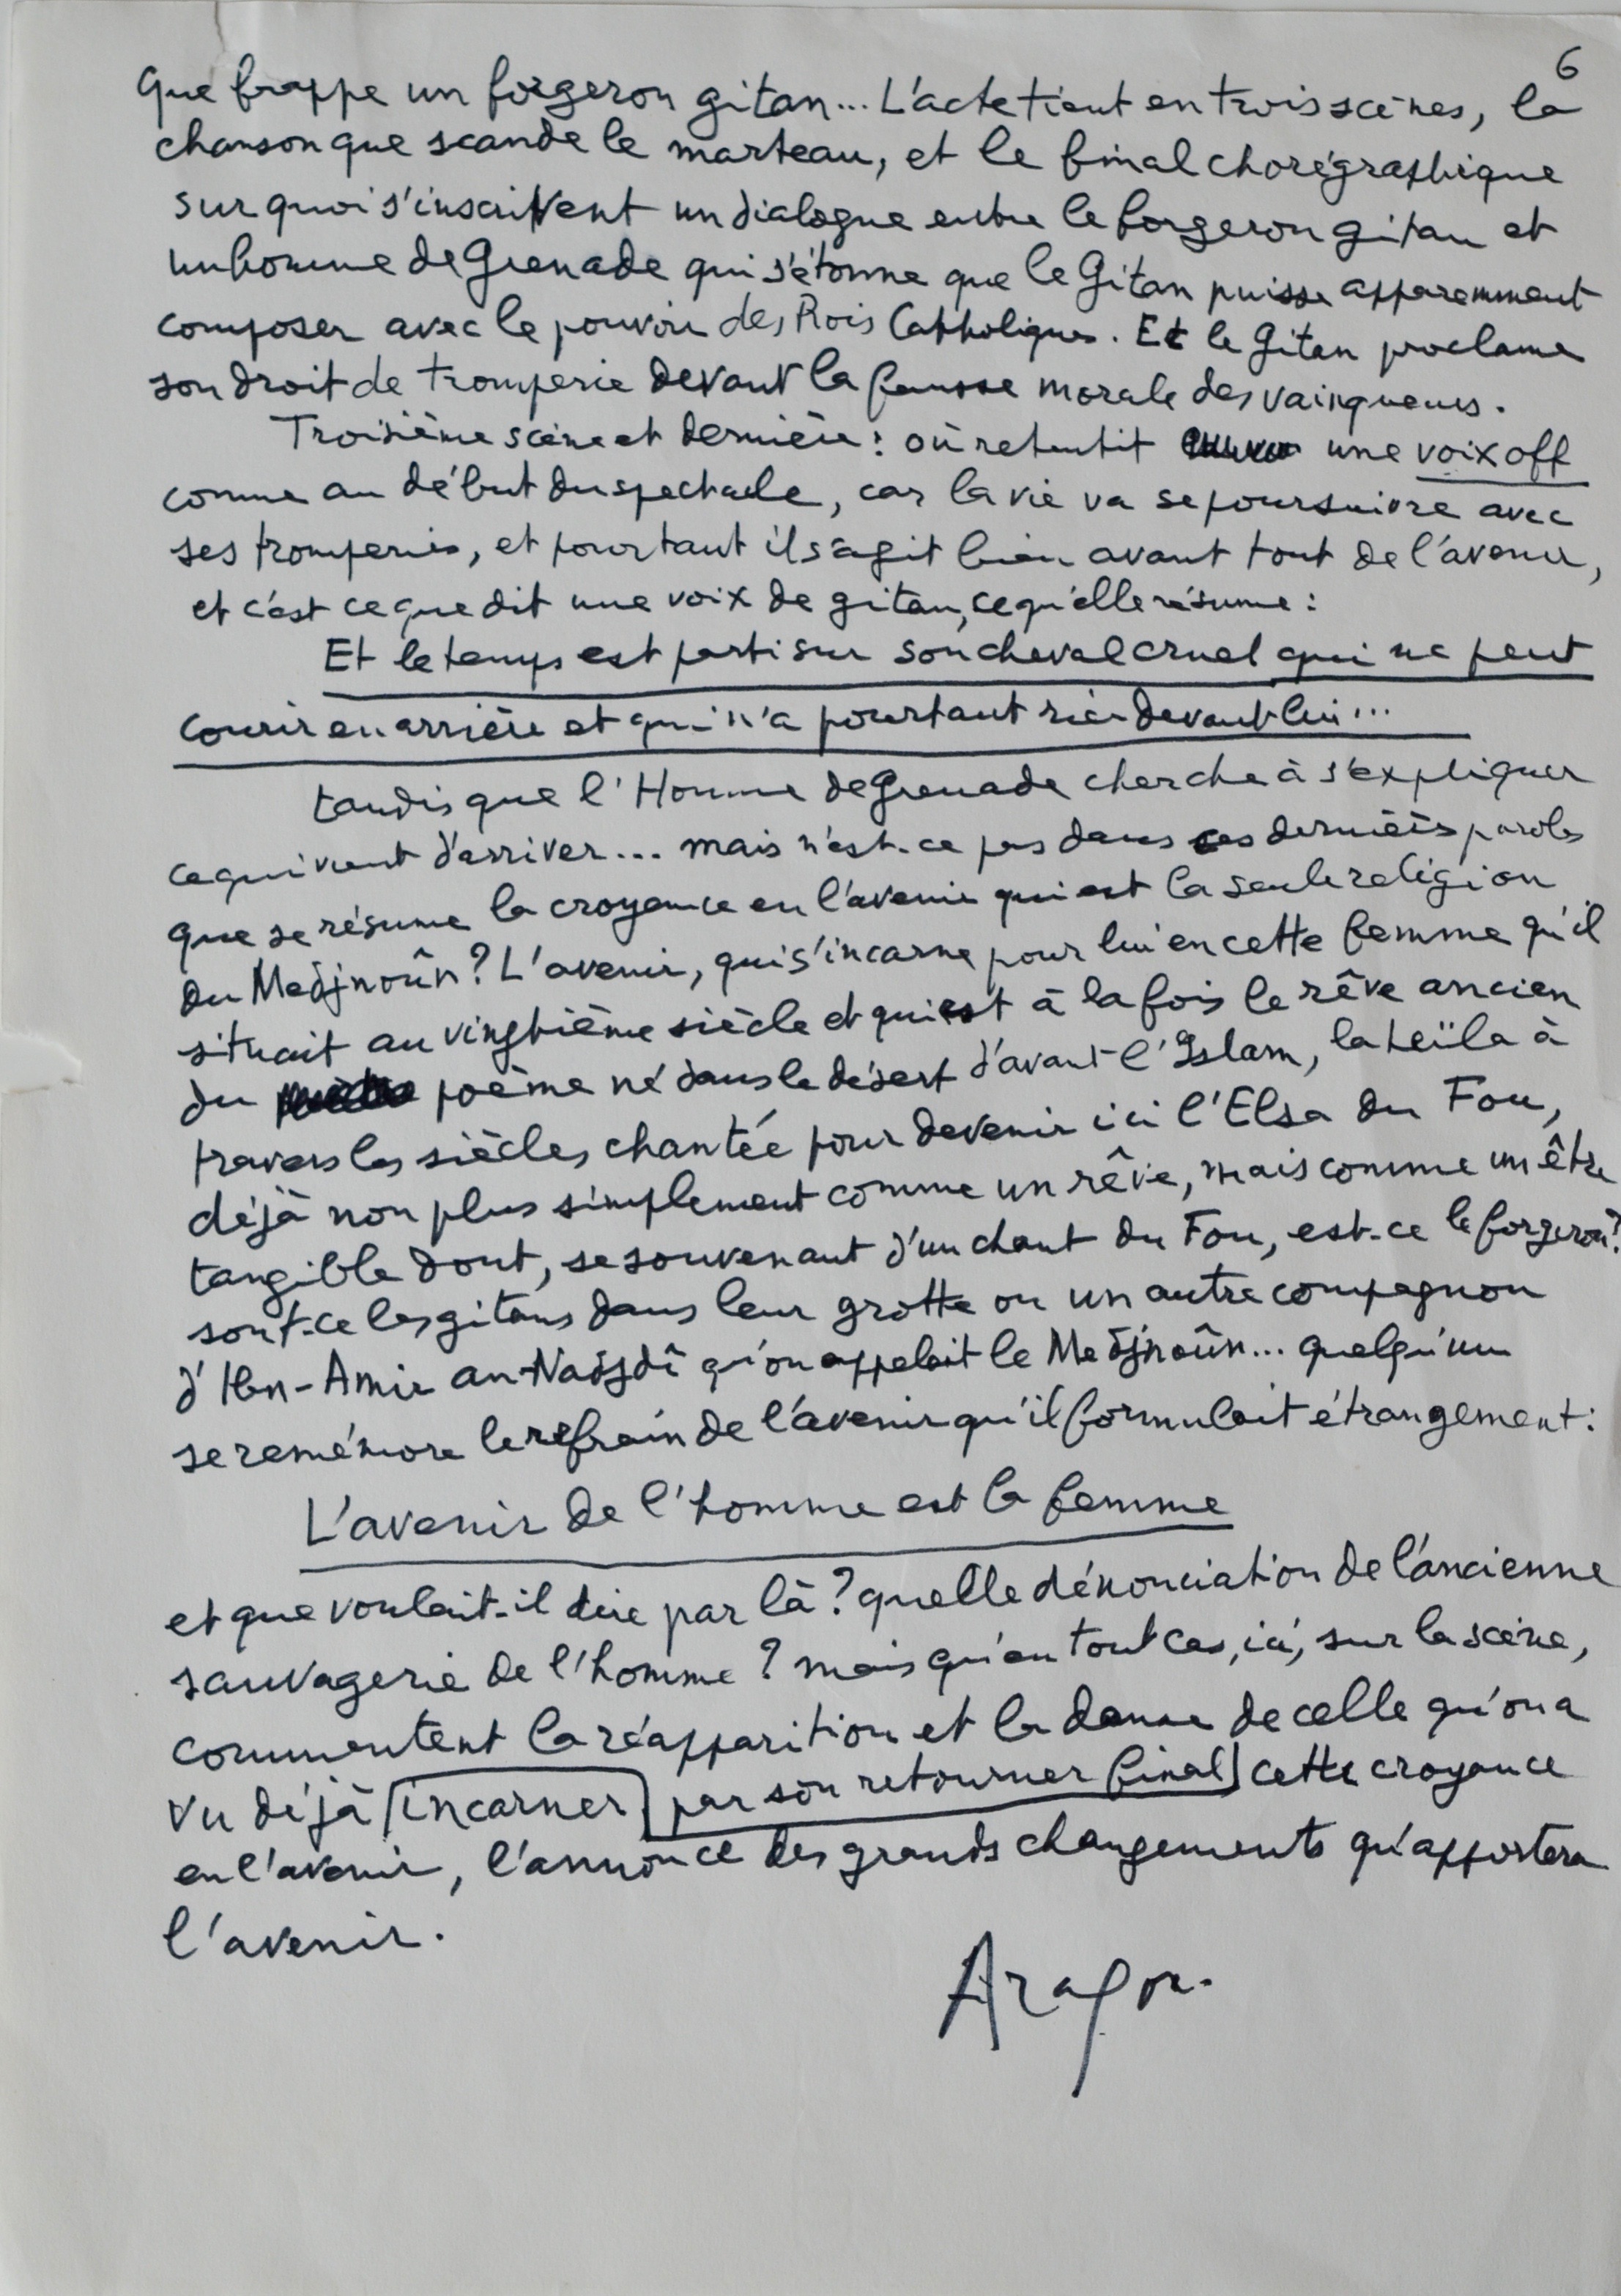 6
que frappe un forgeron gitan... L'acte tient en trois scènes, la
chanson que scande le marteau, et le final chorégraphique
sur quoi s'inscrivent un dialogue entre le forgeron gitan et
un homme de Grenade qui s'étonne que le Gitan puisse apparemment
composer avec le pouvoir des Rois Catholiques. Et le Gitan proclame
son droit de tromperie devant la fausse morale des vainqueurs.
Troisième scène et dernière : où retentit une voix off
comme au début du spectacle, car la vie va se poursuivre avec
ses tromperies, et pourtant il s'agit bien avant tout de l'avenir,
et c'est ce que dit une voix de gitan, ce qu'elle résume :
Et le temps est parti sur son cheval cruel qui ne peut
courir en arrière et qui n'a pourtant rien devant lui...
tandis que l'Homme de Grenade cherche à s'expliquer
ce qui vient d'arriver... mais n'est-ce pas dans ces dernières paroles
que se résume la croyance en l'avenir qui est la seule religion
du Medjnoûn ? L'avenir, qui s'incarne pour lui en cette femme qu'il
situait au vingtième siècle et qui est à la fois le rêve ancien
du poème né dans le désert d'avant l'Islam, la Leïla à
travers les siècles chantée pour devenir ici l'Elsa du Fou,
déjà non plus simplement comme un rêve, mais comme un être
tangible dont, se souvenant d'un chant du Fou, est-ce le forgeron ?
sont-ce les gitans dans leur grotte ou un autre compagnon
d'Ibn-Amir an-Nadjdî qu'on appelait le Medjnoûn... quelqu'un
se remémore le refrain de l'avenir qu'il formulait étrangement :
L'avenir de l'homme est la femme
et que voulait-il dire par là ? quelle dénonciation de l'ancienne
sauvagerie de l'homme ? mais qu'en tout cas, ici, sur la scène,
commentent la réapparition et la danse de celle qu'on a
vu déjà incarner par son retourner final cette croyance
en l'avenir, l'annonce des grands changements qu'apportera
l'avenir.
Aragon.